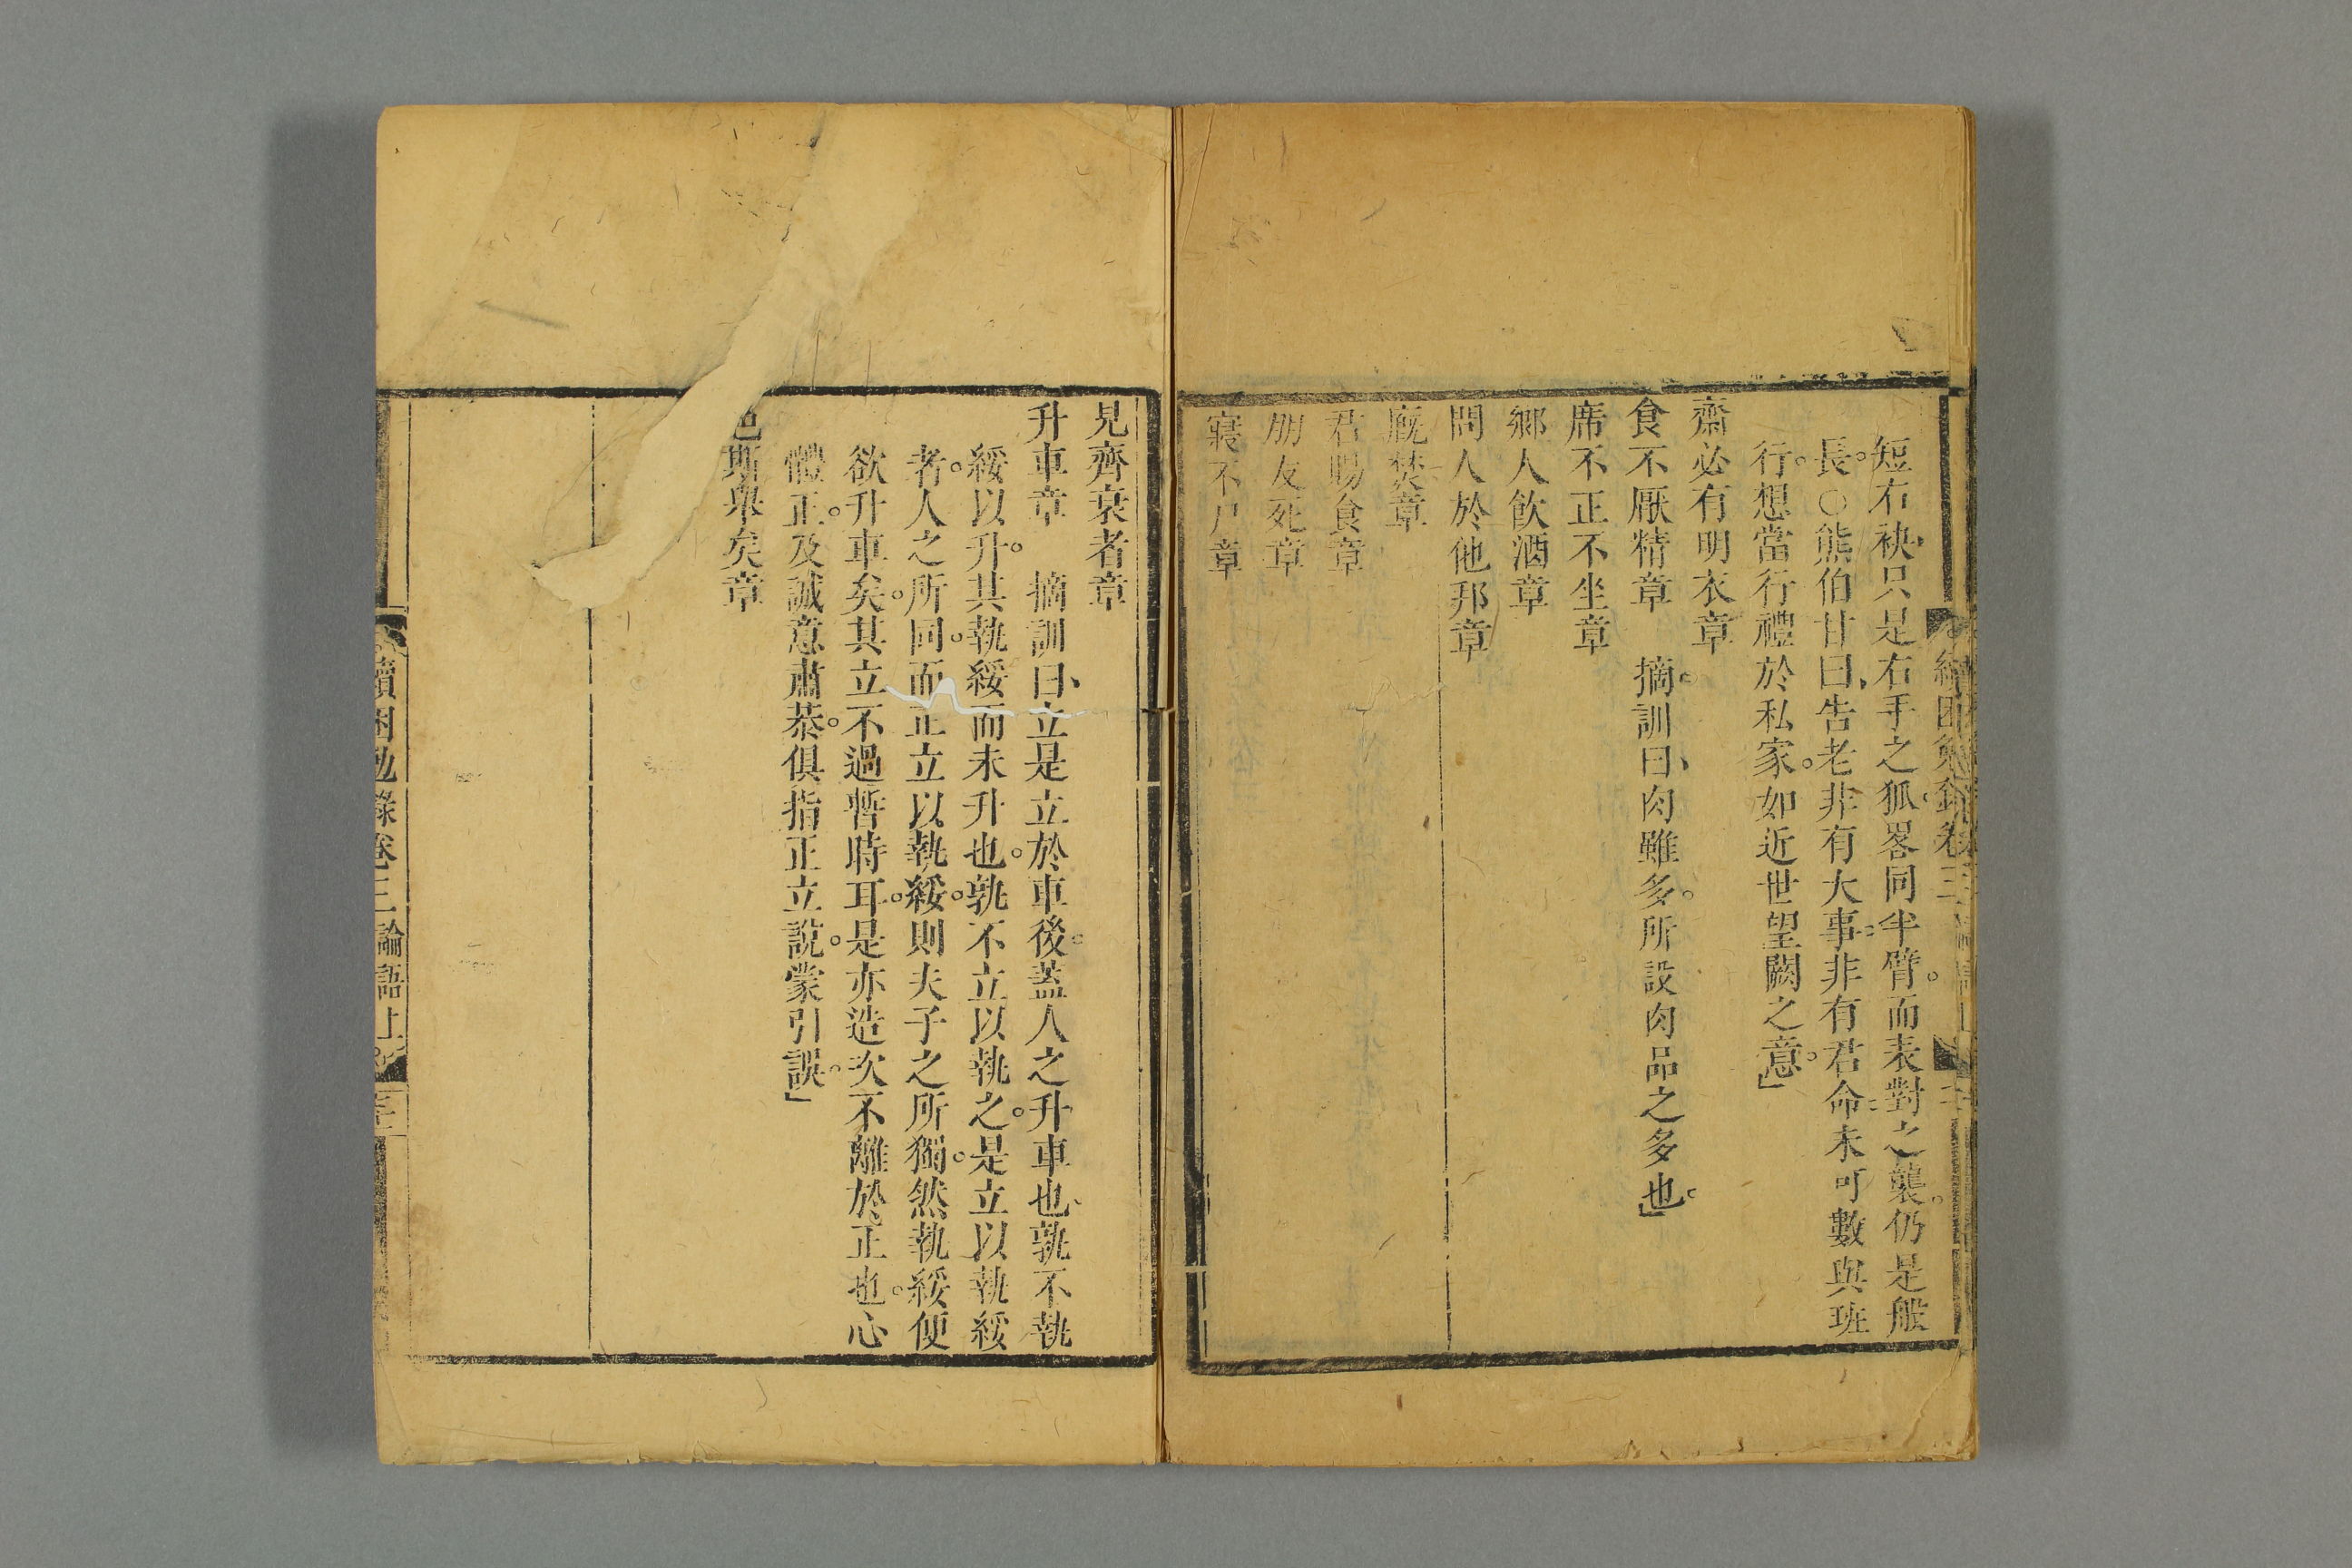 短右袂只是右手之狐畧同半臂。而表對之襲。仍是般
長。○熊伯甘曰、告老非有大事。非有君命。未可數與班
行。想當行禮於私家。如近世望闕之意。」
齋必有明衣章
食不厭精章　摘訓曰、肉雖多。所設肉品之多也。」
席不正不坐章
鄉人飲酒章
問人於他邦章
廐焚章
君賜食章
朋友死章
寢不尸章
見齊衰者章
升車章　摘訓曰、立是立於車後。蓋人之升車也、孰不執
綏以升。其執綏而未升也。孰不立以執之。是立以執綏
者。人之所同。而正立以執綏。則夫子之所獨。然執綏便
欲升車矣。其立不過暫時耳。是亦造次不離於正也。心
體正。及誠意肅恭。俱指正立說。蒙引誤。」
色斯舉矣章
續困勉錄卷三論語上